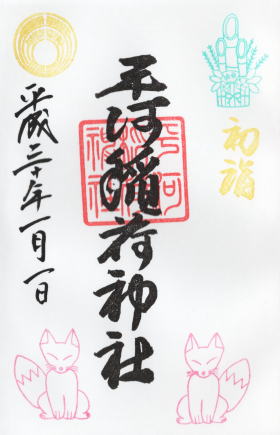 初詣
平河稲荷神社
平成三十年一月一日